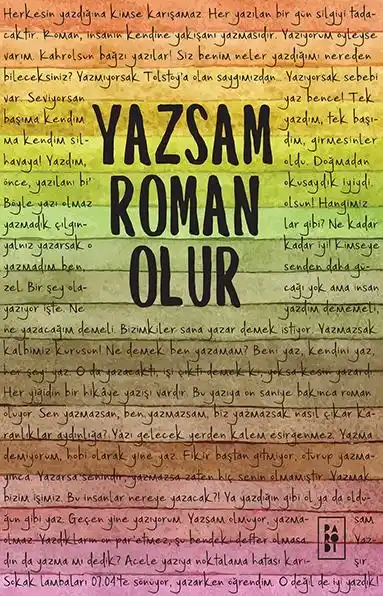 Herkesin yazdığına kimse karışamaz. Her yazılan bir gün silgiyi tada-
caktır. Roman, insanın kendine yakışanı yazmasıdır. Yazıyorum öyleyse
varım. Kahrolsun bağzı yazılar! Siz benim neler yazdığımı nereden
bileceksiniz? Yazmıyorsak Tolstoy'a olan saygımızdan. Yazıyorsak sebebi
var. Seviyorsan yaz bence! Tek
başıma kendim yazdım, tek başı-
ma kendim sil- dim, girmesinler
havaya! Yazdım, oldu. Doğmadan
önce, yazılanı bi' okusaydık iyiydi.
Böyle yazı olmaz olsun! Hangimiz
yazmadık çılgın- lar gibi? Ne kadar
yalnız yazarsak o kadar iyi! Kimseye
yazmadım ben, senden daha gü-
zel. Bir şey ola- cağı yok ama insan
yazıyor işte. Ne yazdım dememeli,
YAZSAM
ROMAN
OLUR
ne yazacağım demeli. Bizimkiler sana yazar demek istiyor. Yazmazsak
kalbimiz kurusun! Ne demek ben yazamam? Beni yaz, kendini yaz,
her şeyi yaz. O da yazacaktı, işi çıktı demek ki, yoksa kesin yazardı.
Her yiğidin bir hikâye yazışı vardır. Bu yazıya on saniye bakınca roman
oluyor. Sen yazmazsan, ben yazmazsam, biz yazmazsak nasıl çıkar ka-
ranlıklar aydınlığa? Yazı gelecek yerden kalem esirgenmez. Yazma
demiyorum, hobi olarak yine yaz. Fikir baştan gitmiyor, oturup yazma-
yınca. Yazarsa senindir, yazmazsa zaten hiç senin olmamıştır. Yazmak
bizim işimiz. Bu insanlar nereye yazacak?! Ya yazdığın gibi ol ya da oldu-
ğun gibi yaz. Geçen yine yazıyorum. Yazsam olmuyor, yazma- sam
olmaz. Yazdıkların on par'etmez, şu bendeki defter olmasa. Yaz-
dın da yazma mı dedik? Acele yazıya noktalama hatası karı- şır.
Sokak lambaları 07.04'te sönüyor, yazarken öğrendim. O değil de iyi yazdık!
PA
RO
DI